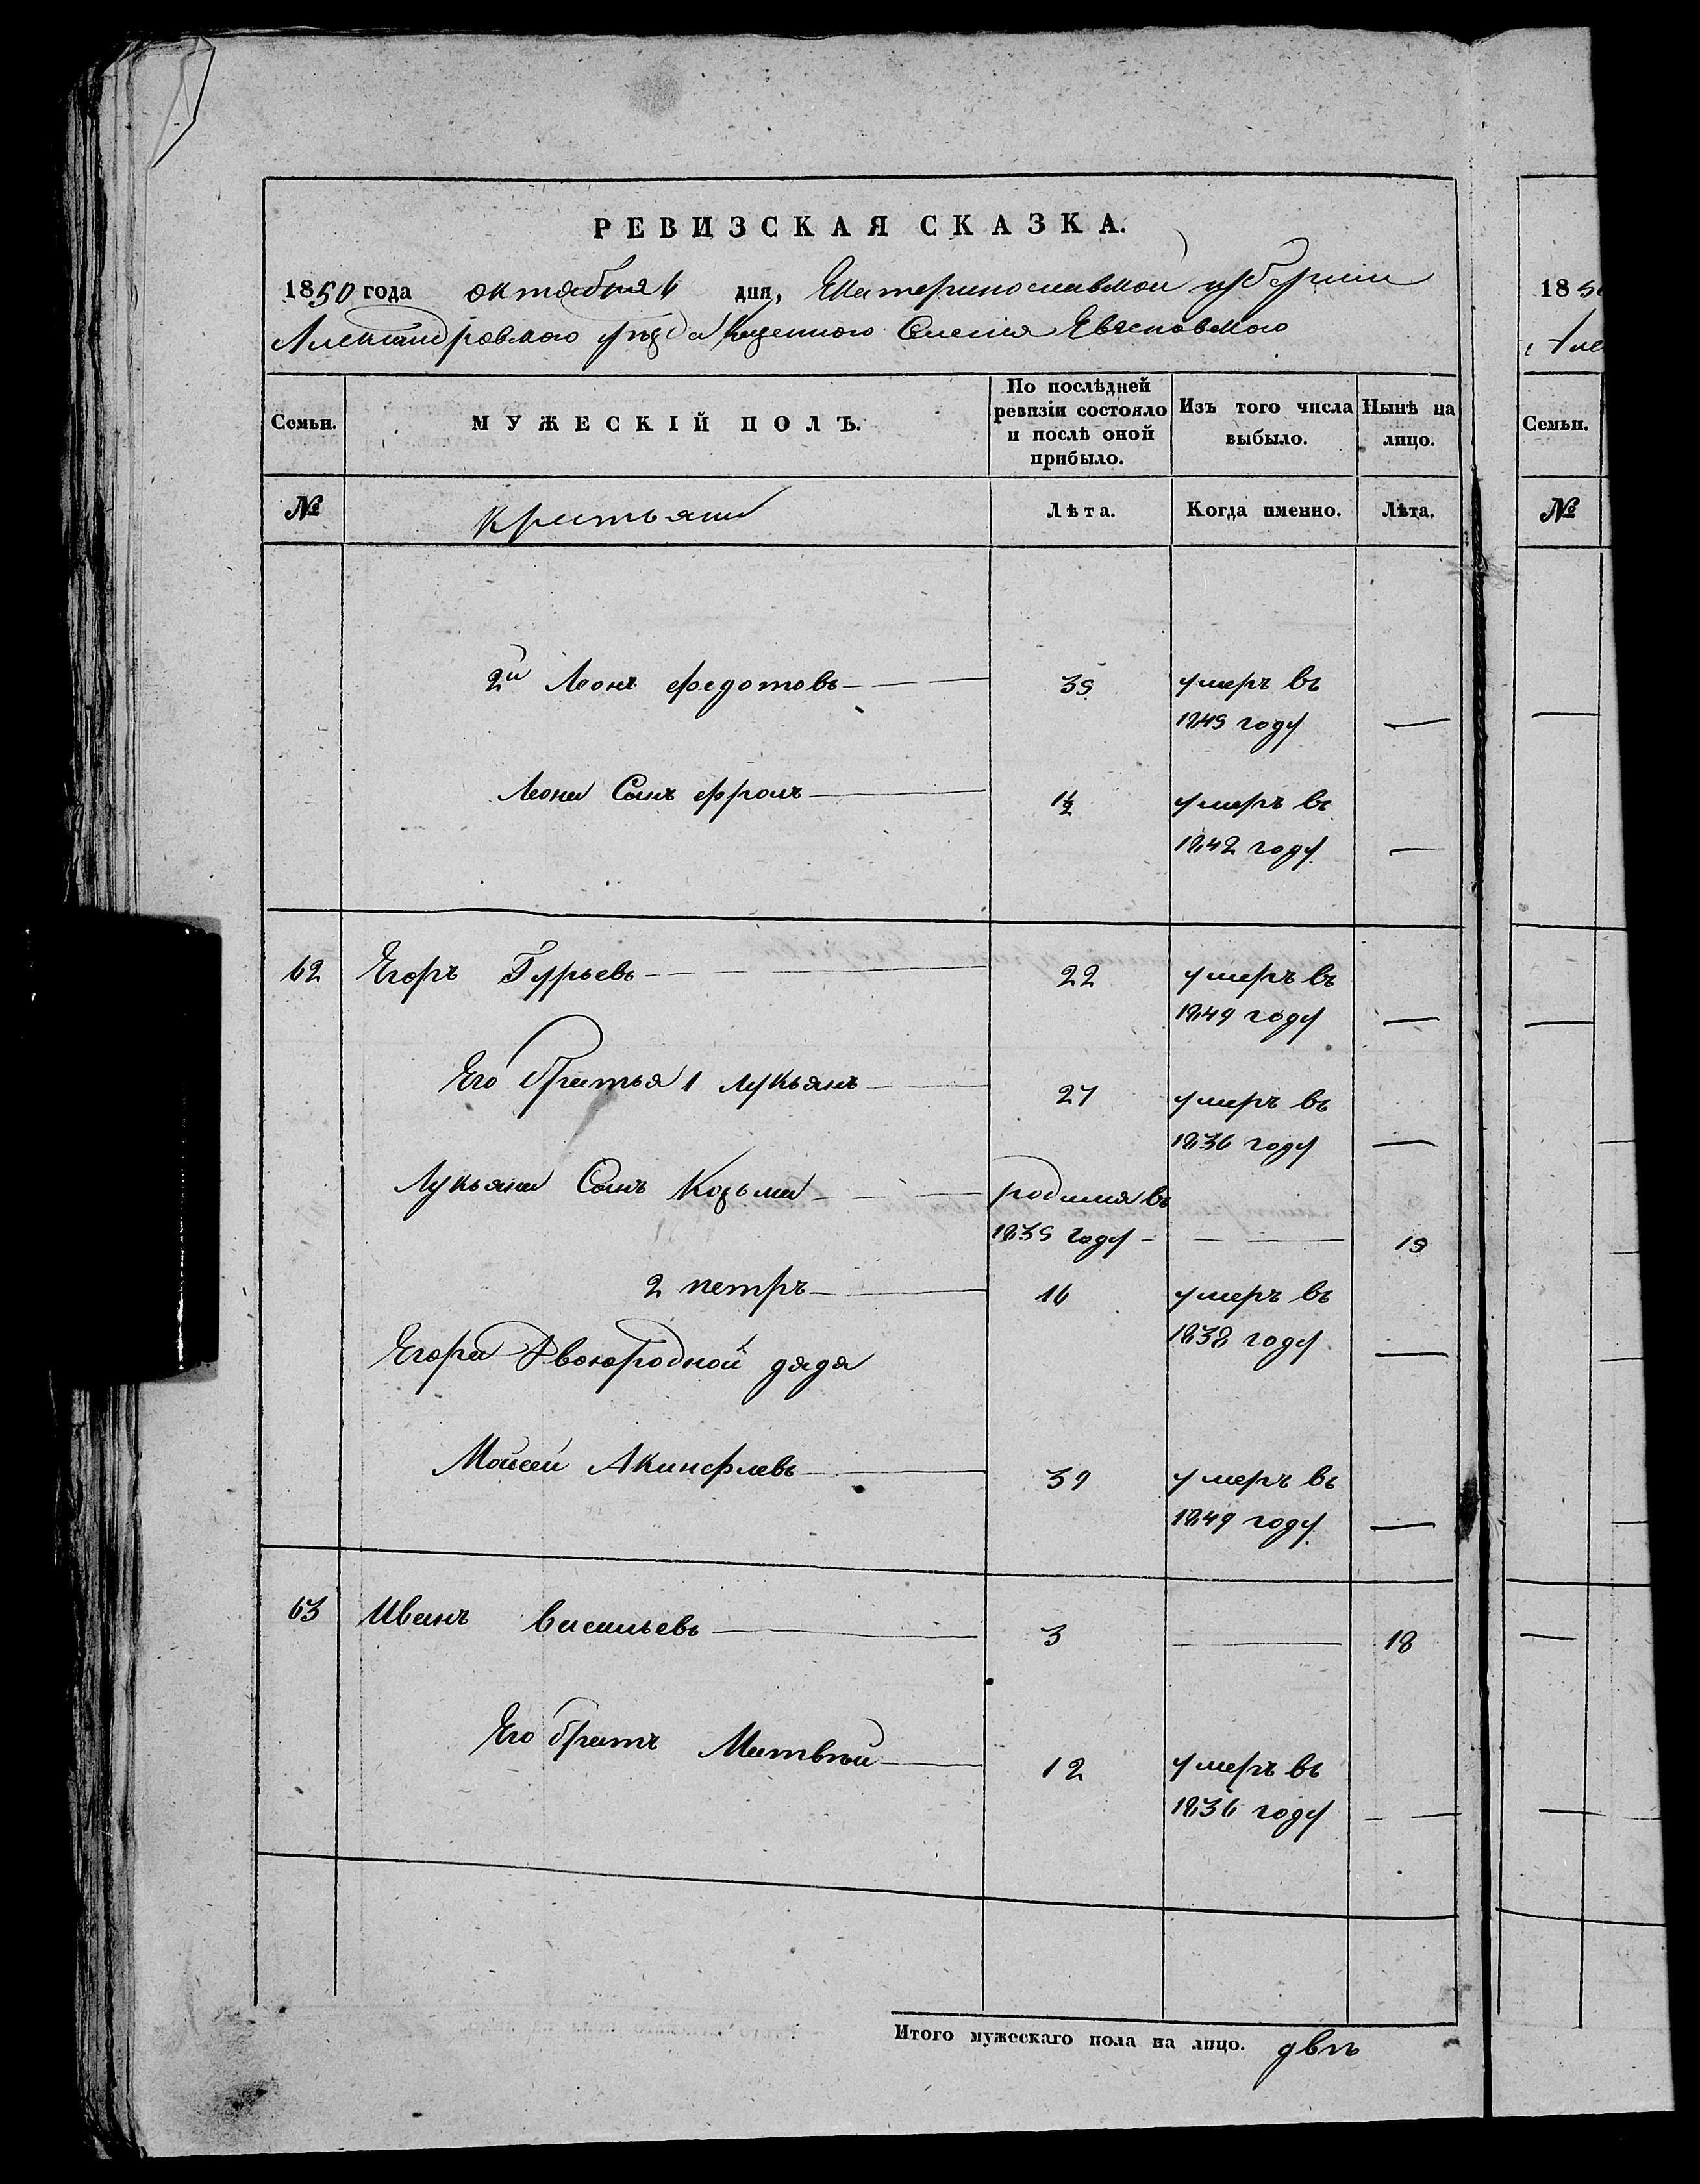 РЕВИЗСКАЯ СКАЗКА.
1850 года октября 6 дня, Екатеринославской губернии
Александровского уезда Казенного Селения Евсковского
Семьи. МУЖЕСКІЙ ПОЛЪ. По послѣдней ревизіи состояло и послѣ оной прибыло. Изъ того числа выбыло. Нынѣ на лицо.
№ Крестьяни Лѣта. Когда именно. Лѣта.
2й Леонъ Федотовъ 35 умеръ въ
1845 году —
Леона Сынъ Фролъ 1½ умеръ въ
1842 году —
62 Егоръ Гурьевъ 22 умеръ въ
1849 году —
Его братья 1 Лукьянъ 27 умеръ въ
1836 году —
Лукьяна Сынъ Козьма родился въ
1835 году 15
2 петръ 16 умеръ въ
1838 году —
Егора Двоюродной дядя
Моисей Акинфиевъ 39 умеръ въ
1849 году —
63 Иванъ Васильевъ 3 — 18
Его братъ Матвей 12 умеръ въ
1836 году —
Итого мужескаго пола на лицо. двѣ
1850
Але
Семьи.
№